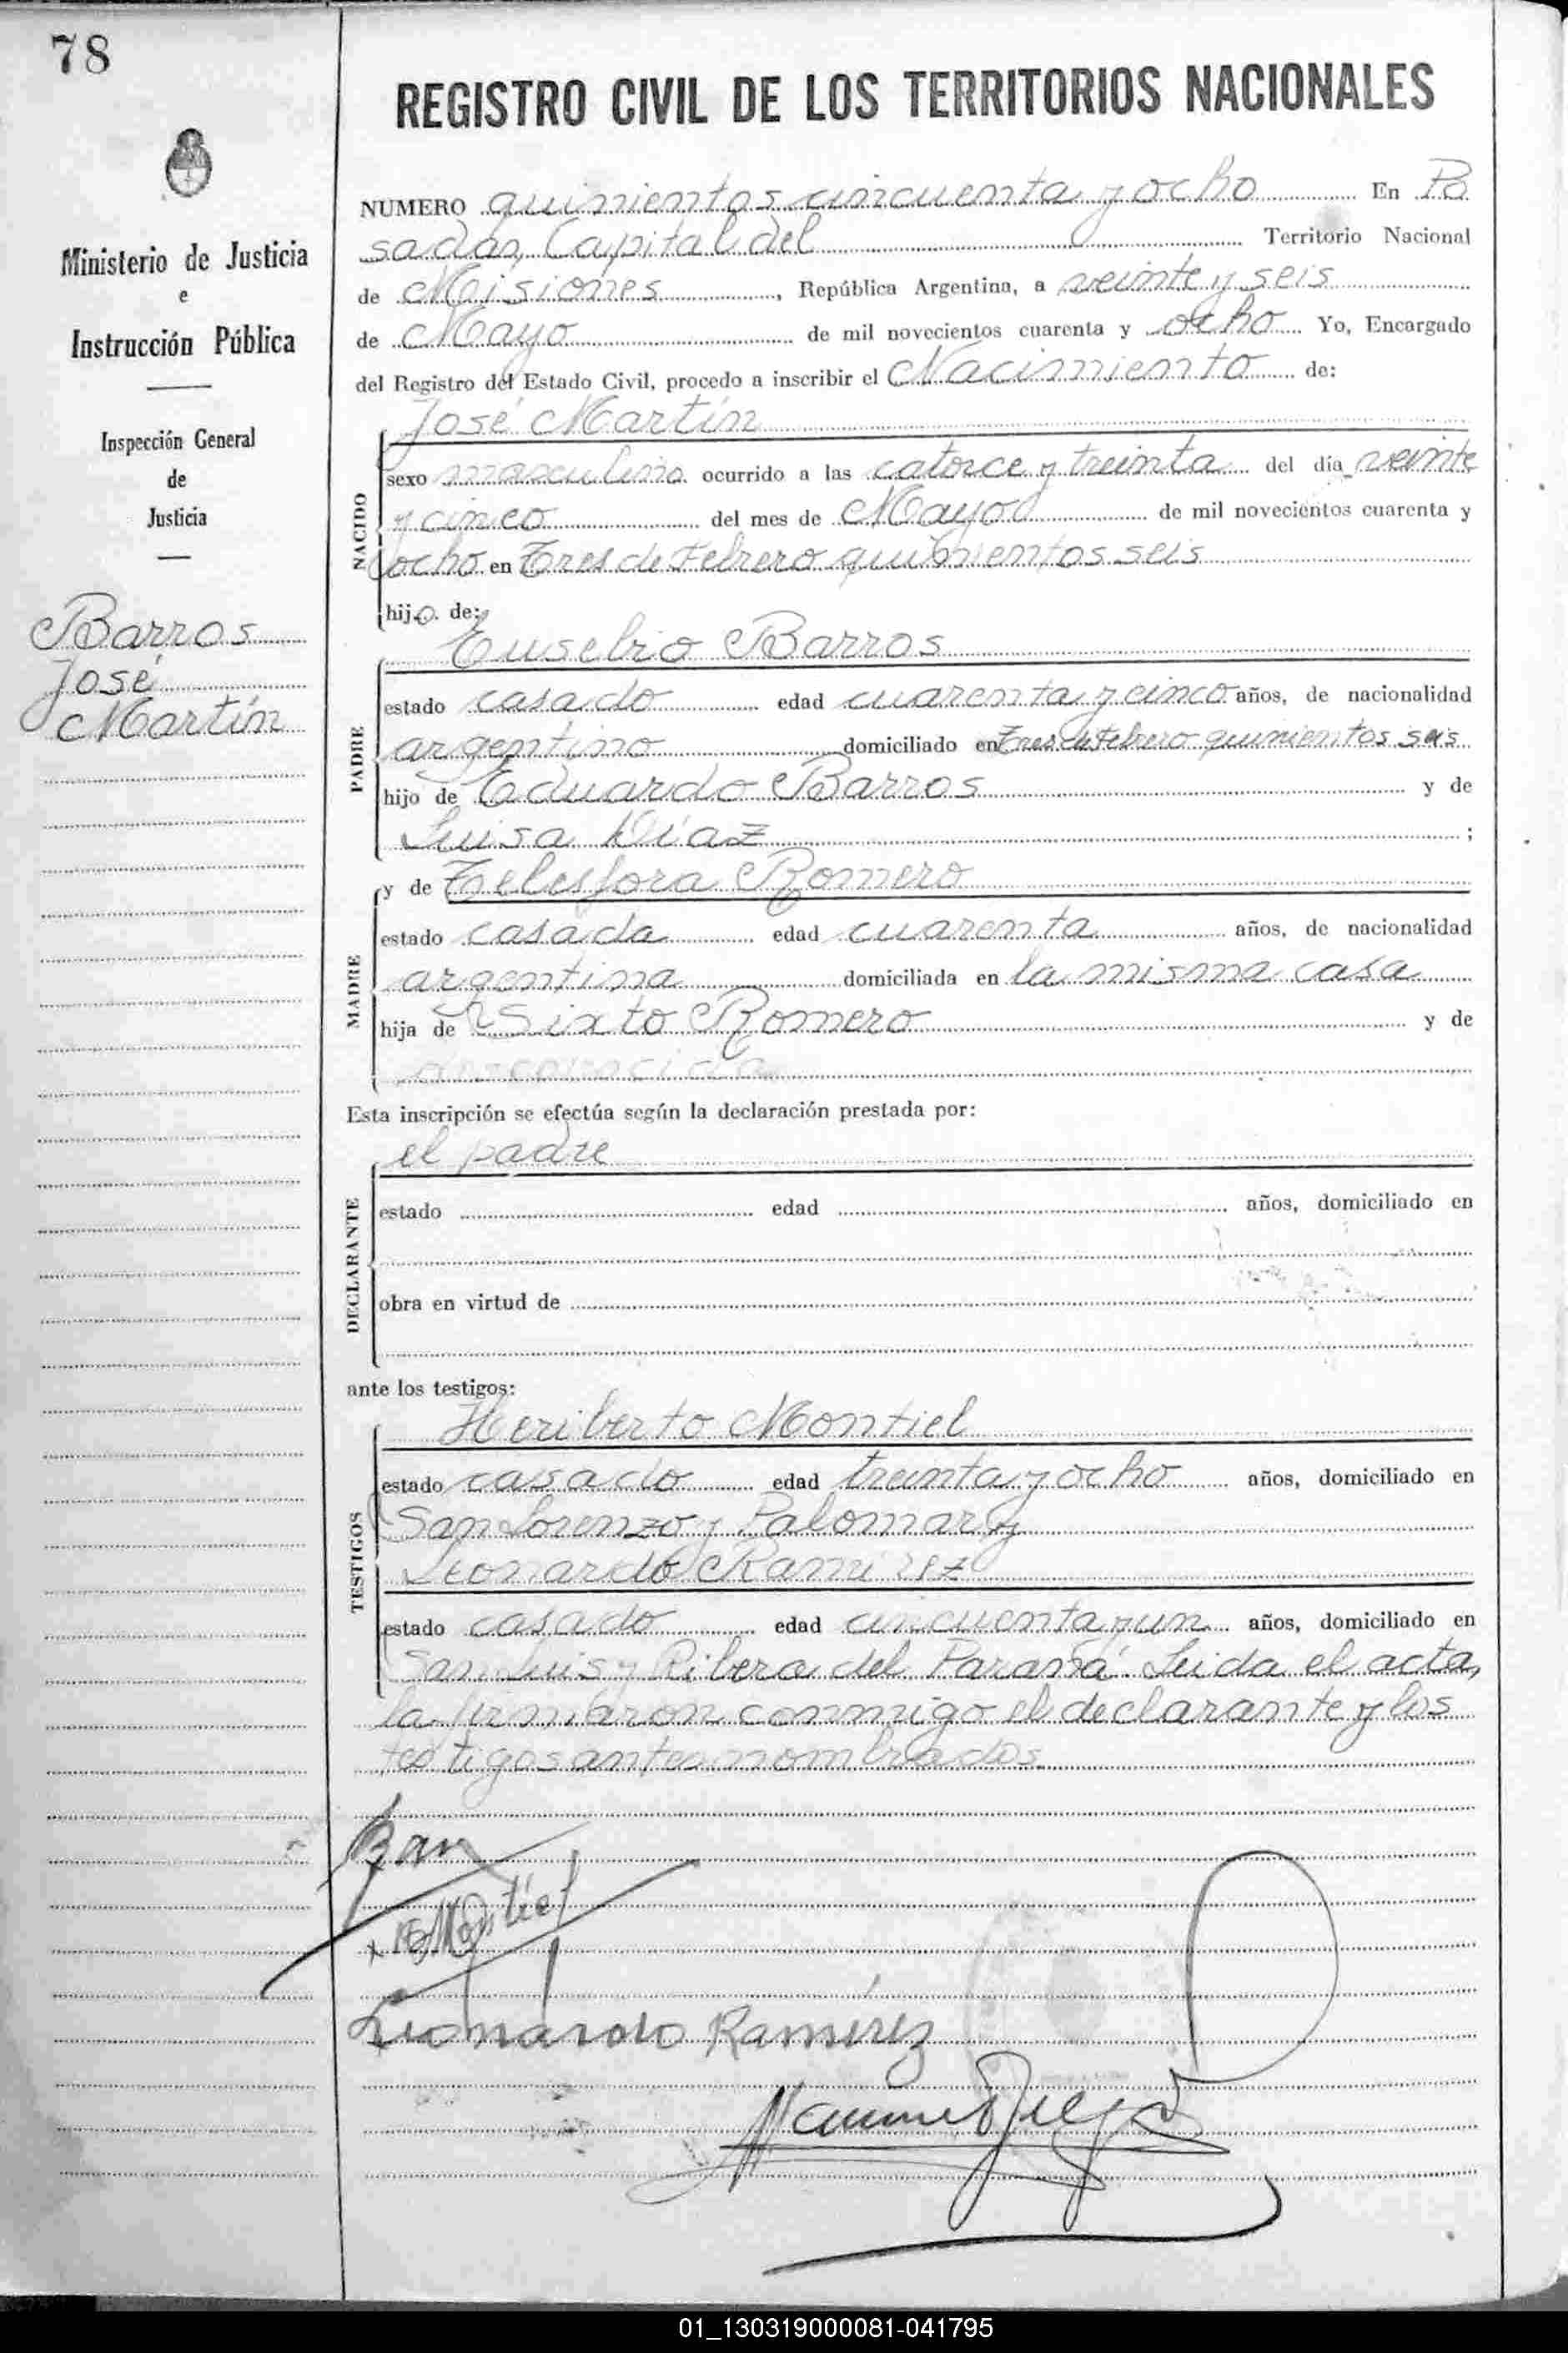 78
Ministerio de Justicia
e
Instrucción Pública
Inspección General
de
Justicia
Barros
José
Martín
REGISTRO CIVIL DE LOS TERRITORIOS NACIONALES
NUMERO quinientos cincuenta y ocho En Po
sadas, Capital del Territorio Nacional
de Misiones, República Argentina, a veinte y seis
de Mayo de mil novecientos cuarenta y ocho Yo, Encargado
del Registro del Estado Civil, procedo a inscribir el Nacimiento de:
José Martín
NACIDO
sexo masculino ocurrido a las catorce y treinta del día veinte
y cinco del mes de Mayo de mil novecientos cuarenta y
ocho en Tres de Febrero quinientos seis
hijo de:
Eusebio Barros
PADRE
estado casado edad cuarenta y cinco años, de nacionalidad
argentino domiciliado en Tres de Febrero quinientos seis
hijo de Eduardo Barros y de
Luisa Díaz ;
y de Telesfora Romero
MADRE
estado casada edad cuarenta años, de nacionalidad
argentina domiciliada en la misma casa
hija de Sixto Romero y de
desconocida
Esta inscripción se efectúa según la declaración prestada por:
el padre
DECLARANTE
estado edad años, domiciliado en
obra en virtud de
ante los testigos:
Heriberto Montiel
TESTIGOS
estado casado edad treinta y ocho años, domiciliado en
San Lorenzo y Palomar y
Leonardo Ramirez
estado casado edad cincuenta y un años, domiciliado en
San Luis y Ribera del Paraná. Leida el acta,
la firmaron conmigo el declarante y los
testigos antes nombrados.
Montiel
Leonardo Ramírez
01_130319000081-041795